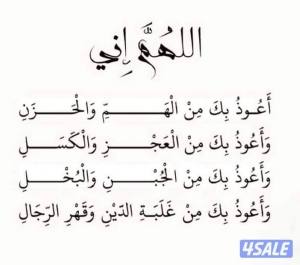 اللهُمَّ إِني
أَعُوذُ بِكَ مِنْ الْهَـــــمِّ وَالْحَـزَنِ
وَأَعُوذُ بِكَ مِنْ الْعَـجْـزِ وَالْكَسَلِ
وَأَعُوذُ بِكَ مِنْ الْجُبْـنِ وَالْبُخْـلِ
وَأَعُوذُ بِكَ مِنْ غَلَبَةِ الدَّيْنِ وَقَهْرِ الرِّجَالِ
4SALE